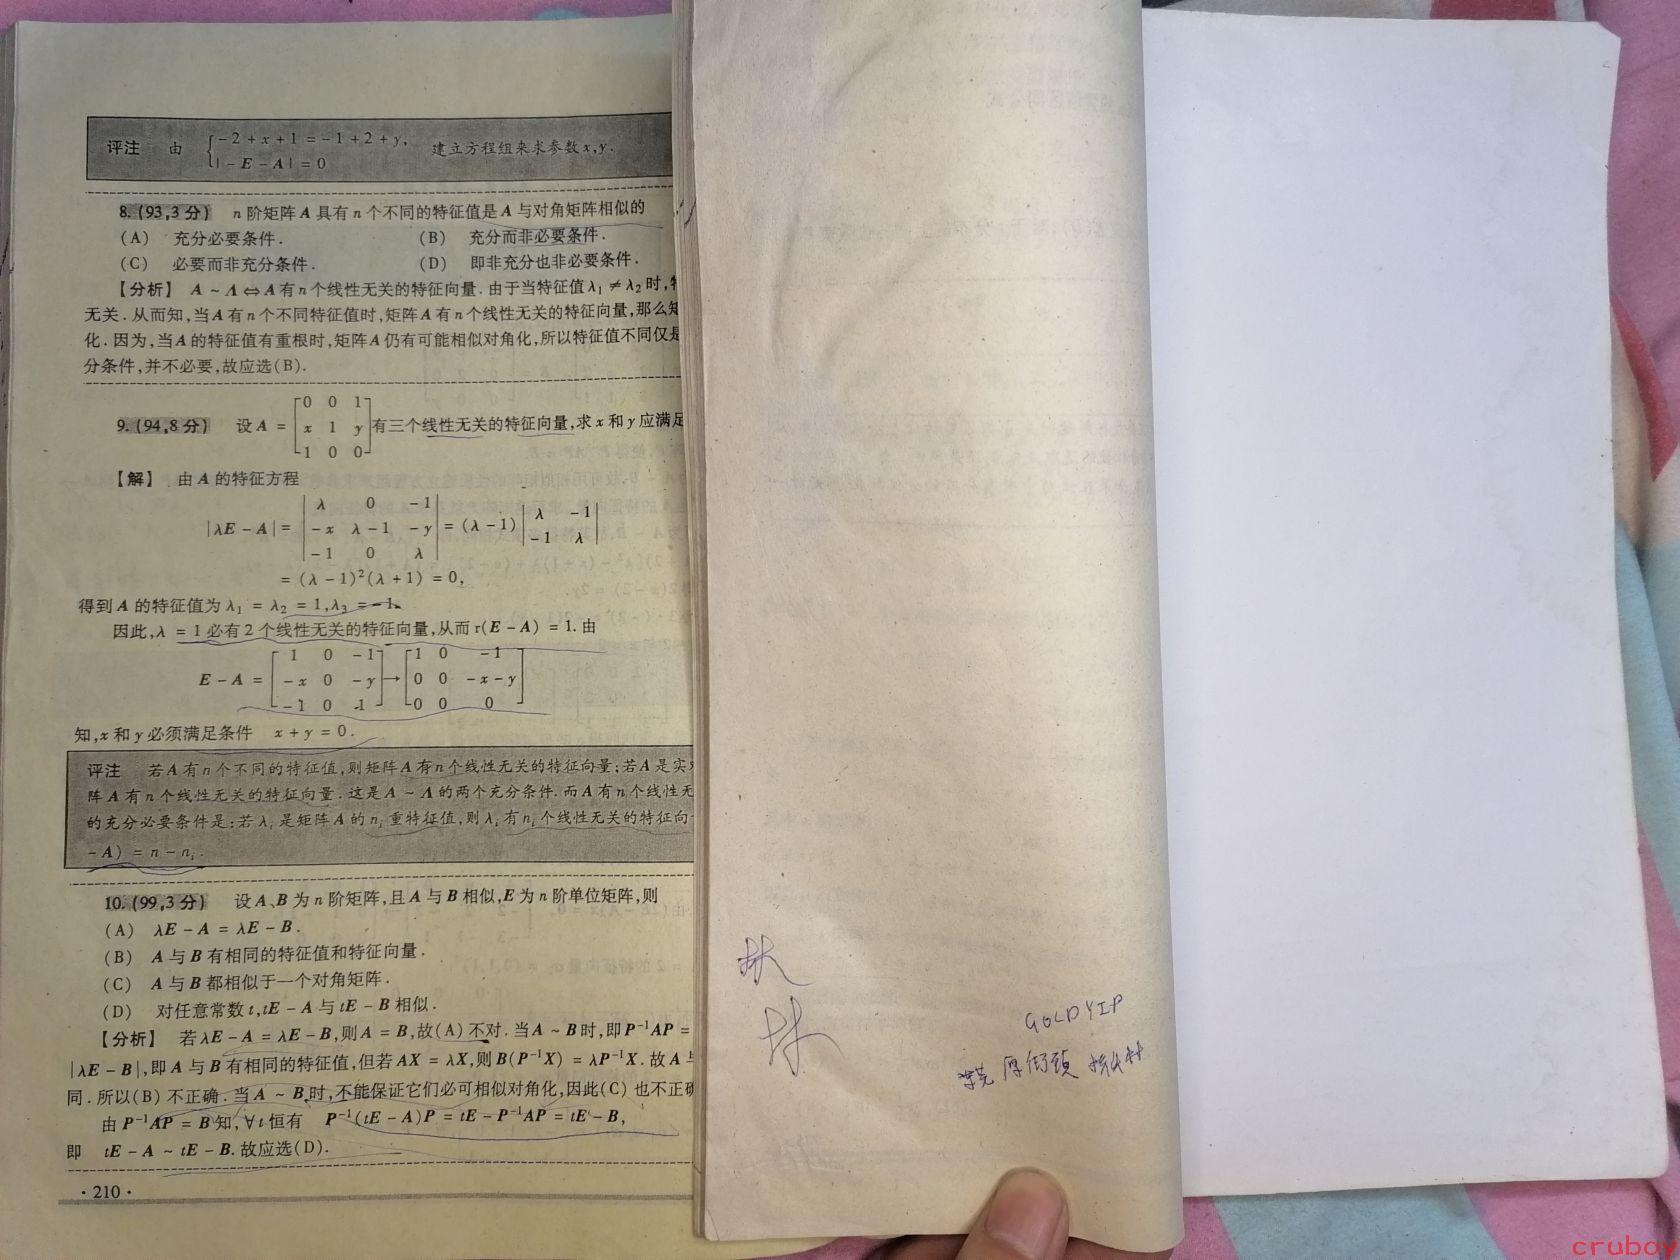 评注 由 {-2+x+1=-1+2+y, |-E-A|=0 建立方程组来求参数x,y.
8.(93,3分) n阶矩阵A具有n个不同的特征值是A与对角矩阵相似的
(A) 充分必要条件. (B) 充分而非必要条件.
(C) 必要而非充分条件. (D) 即非充分也非必要条件.
【分析】 A~Λ⇔A有n个线性无关的特征向量.由于当特征值λ₁≠λ₂时,
无关.从而知,当A有n个不同特征值时,矩阵A有n个线性无关的特征向量,那么
化.因为,当A的特征值有重根时,矩阵A仍有可能相似对角化,所以特征值不同仅是
分条件,并不必要,故应选(B).
9.(94,8分) 设A=[0 0 1; x 1 y; 1 0 0]有三个线性无关的特征向量,求x和y应满足
【解】 由A的特征方程
|λE-A|=|λ 0 -1; -x λ-1 -y; -1 0 λ|=(λ-1)|λ -1; -1 λ|
=(λ-1)²(λ+1)=0,
得到A的特征值为λ₁=λ₂=1,λ₃=-1.
因此,λ=1必有2个线性无关的特征向量,从而r(E-A)=1.由
E-A=[1 0 -1; -x 0 -y; -1 0 1]→[1 0 -1; 0 0 -x-y; 0 0 0]
知,x和y必须满足条件 x+y=0.
评注 若A有n个不同的特征值,则矩阵A有n个线性无关的特征向量;若A是实
阵A有n个线性无关的特征向量.这是A~Λ的两个充分条件.而A有n个线性无
的充分必要条件是:若λᵢ是矩阵A的nᵢ重特征值,则λᵢ有nᵢ个线性无关的特征向
-A)=n-nᵢ.
10.(99,3分) 设A、B为n阶矩阵,且A与B相似,E为n阶单位矩阵,则
(A) λE-A=λE-B.
(B) A与B有相同的特征值和特征向量.
(C) A与B都相似于一个对角矩阵.
(D) 对任意常数t,tE-A与tE-B相似.
【分析】 若λE-A=λE-B,则A=B,故(A)不对.当A~B时,即P⁻¹AP=
|λE-B|,即A与B有相同的特征值,但若AX=λX,则B(P⁻¹X)=λP⁻¹X.故A与
同.所以(B)不正确.当A~B时,不能保证它们必可相似对角化,因此(C)也不正确
由P⁻¹AP=B知,∀t恒有 P⁻¹(tE-A)P=tE-P⁻¹AP=tE-B,
即 tE-A~tE-B.故应选(D).
·210·
GOLDYIP
cruboy